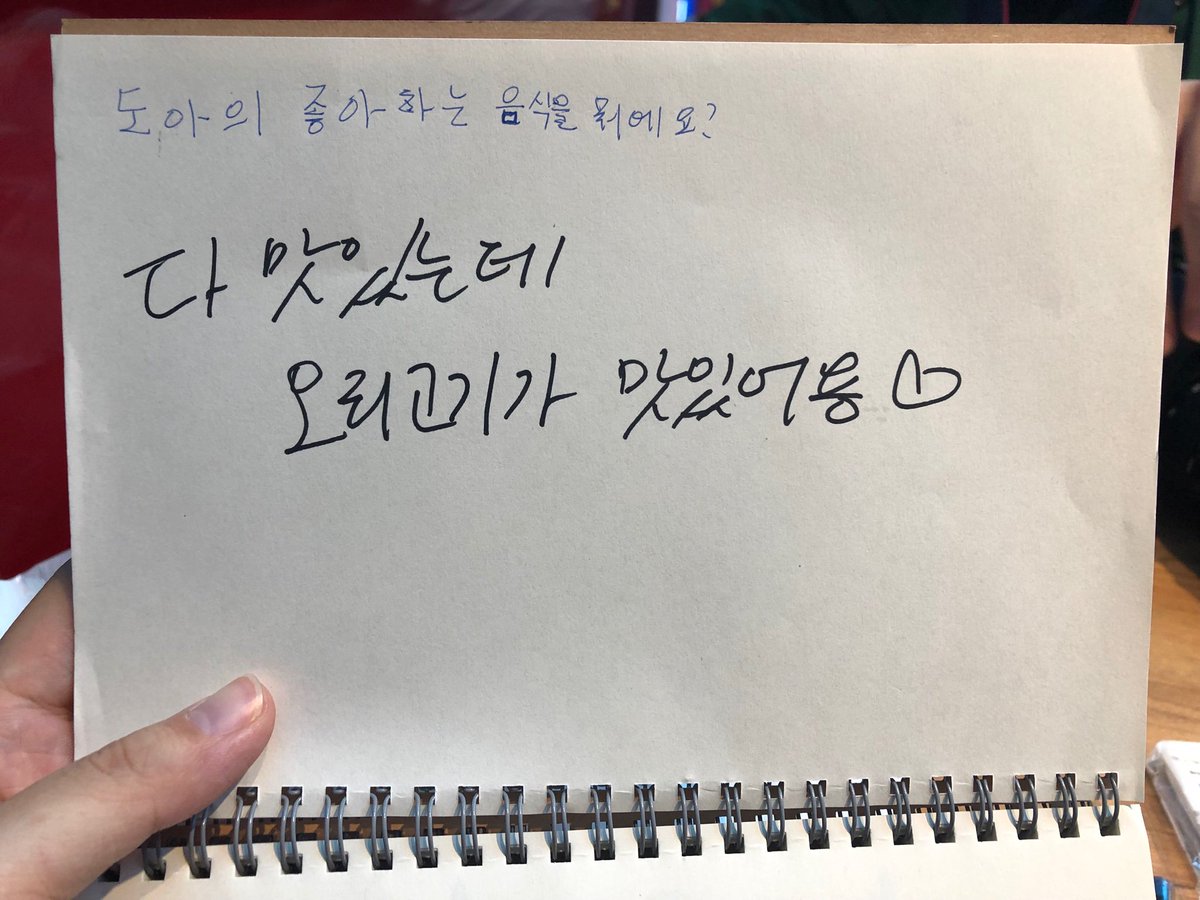 도아의 좋아하는 음식을 뭐에요?
다 맛있는데
오리고기가 맛있어용♡